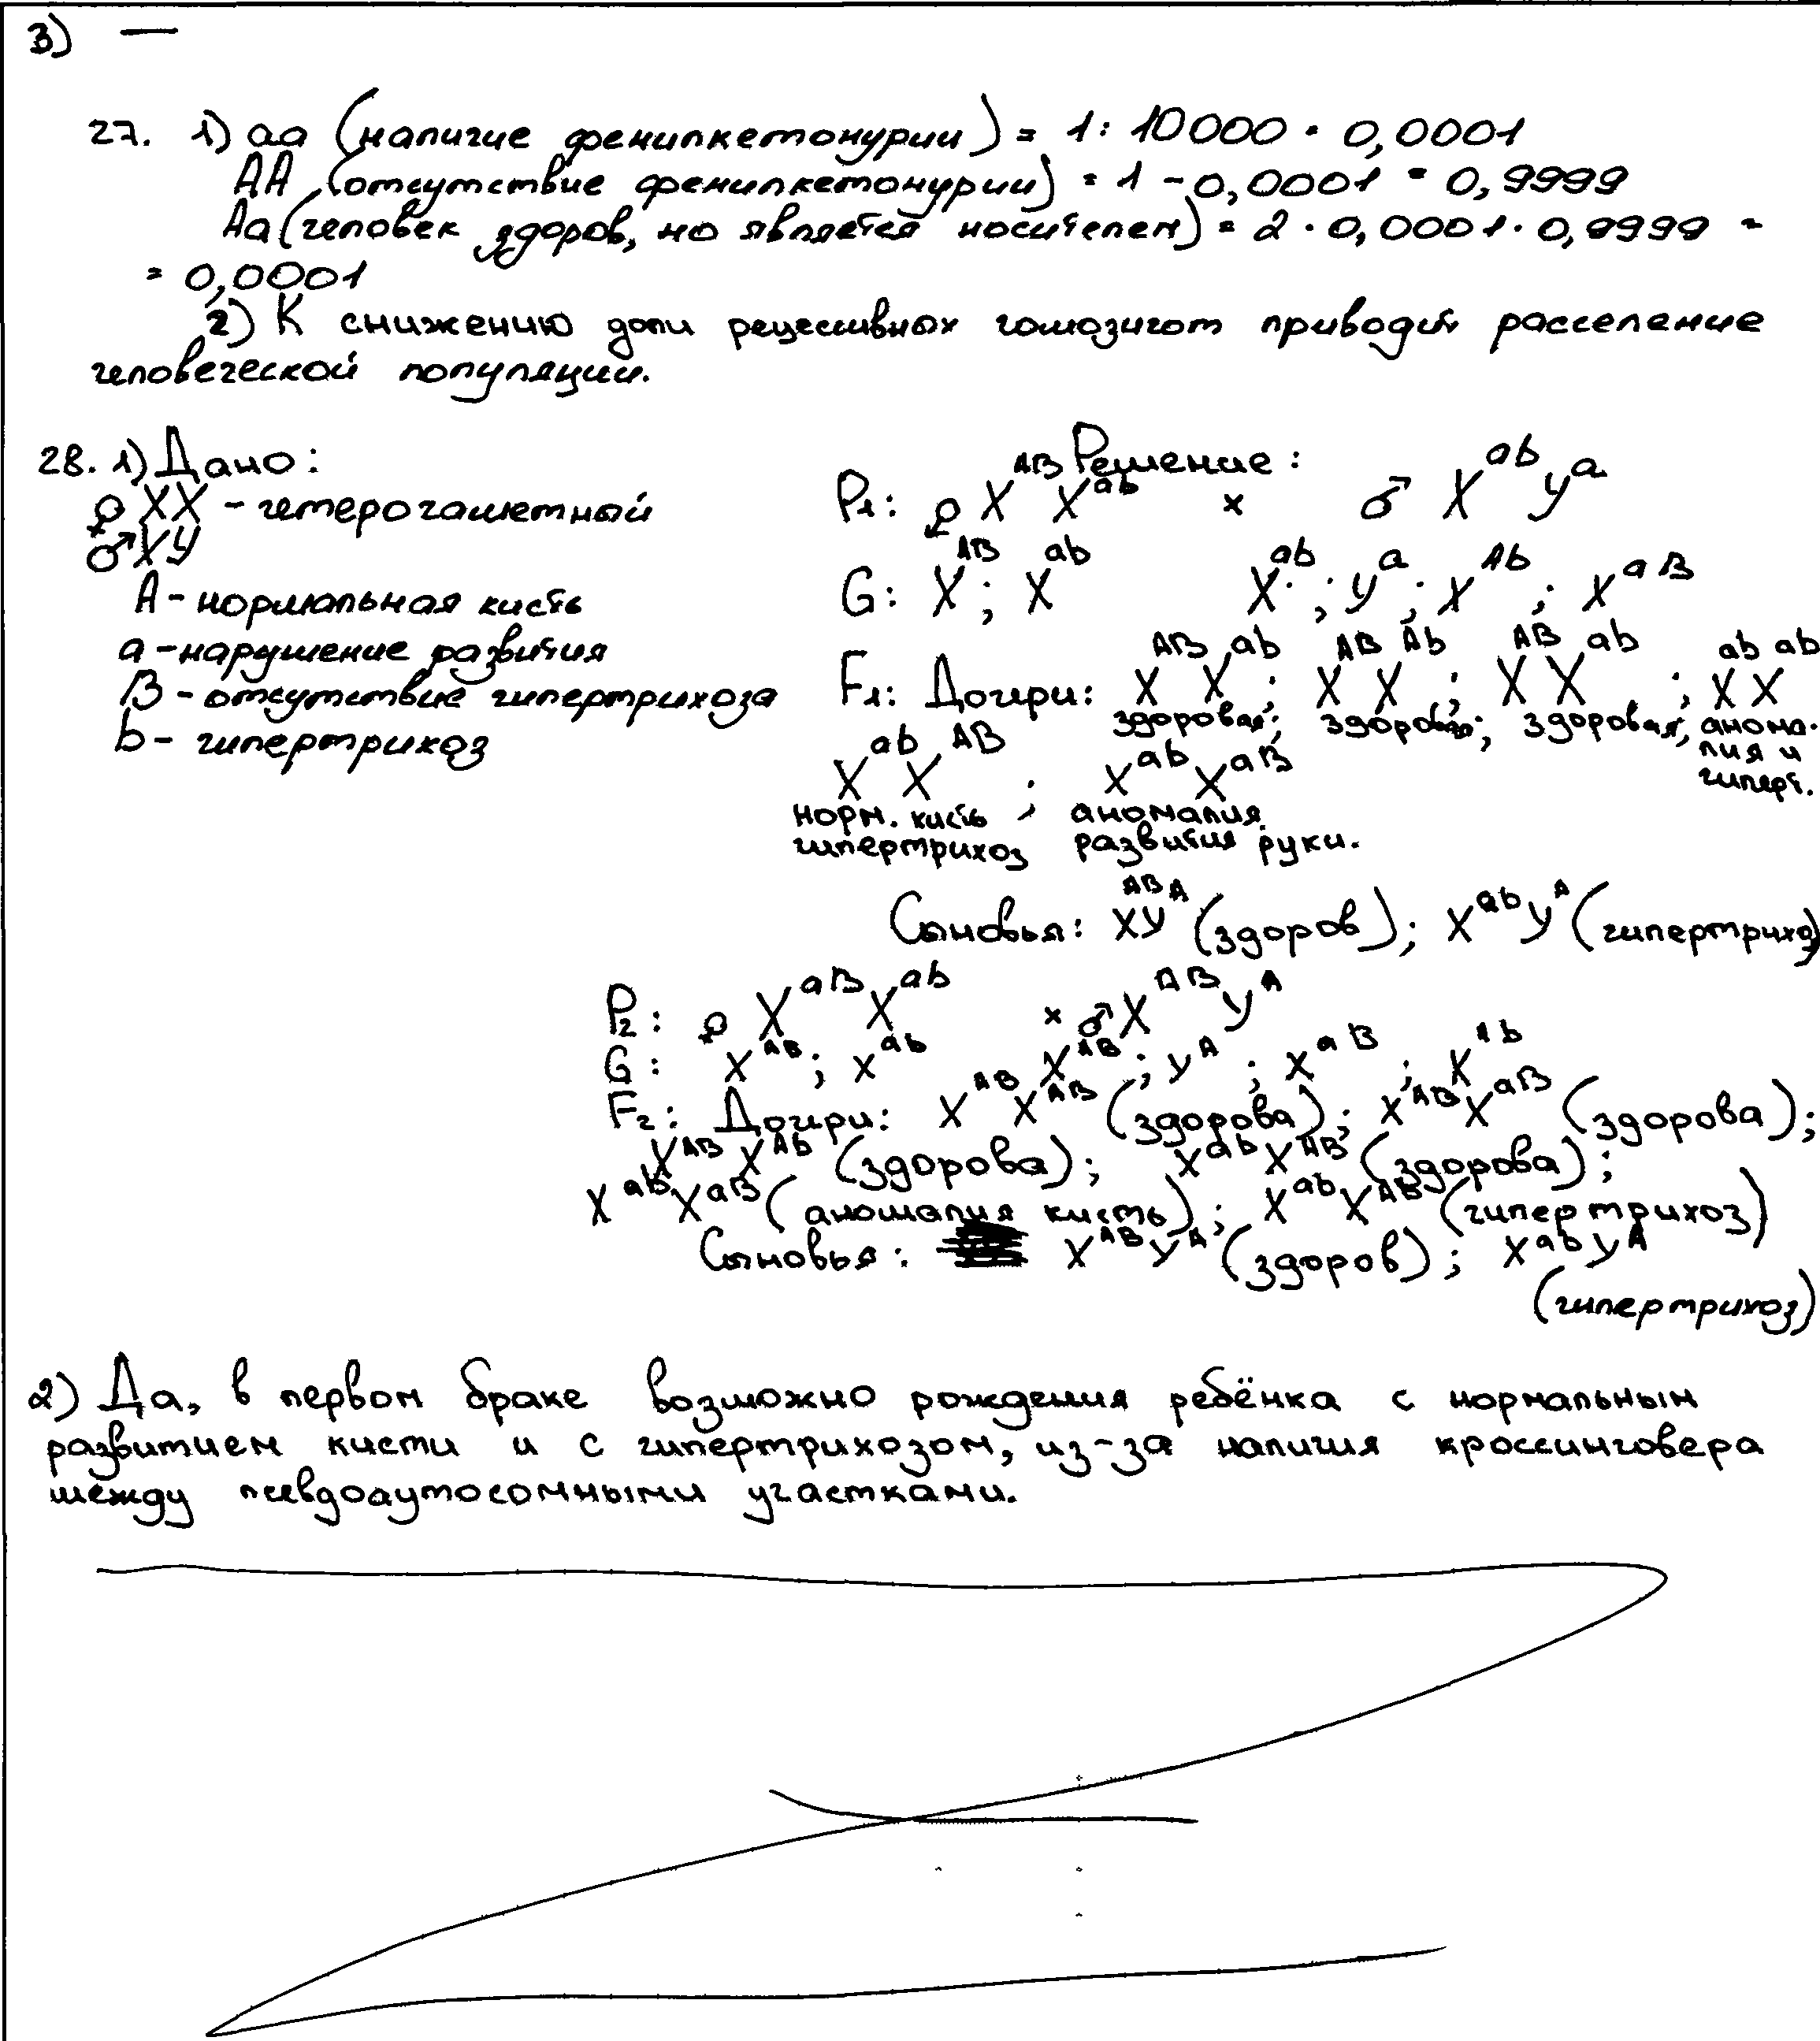 3) —
27. 1) aa (наличие фенилкетонурии) = 1 : 10000 = 0,0001
AA (отсутствие фенилкетонурии) = 1 - 0,0001 = 0,9999
Aa (человек здоров, но является носителем) = 2 · 0,0001 · 0,9999 =
= 0,0001
2) К снижению доли рецессивных гомозигот приводит расселение
человеческой популяции.
28. 1) Дано:
♀ XX - гетерогаметный
♂ XY
A - нормальная кисть
a - нарушение развития
B - отсутствие гипертрихоза
b - гипертрихоз
Решение:
P₁: ♀ X^AB X^ab × ♂ X^ab Y^a
G: X^AB ; X^ab X^ab ; Y^a ; X^Ab ; X^aB
F₁: Дочери: X^AB X^ab ; X^AB X^Ab ; X^AB X^ab ; X^ab X^ab
здоровая; здоровая; здоровая; анома-
лия и
гиперт.
X^ab X^AB ; X^ab X^aB
норм. кисть ; аномалия
гипертрихоз развития руки.
Сыновья: X^AB Y^A (здоров); X^ab Y^A (гипертрихоз)
P₂: ♀ X^aB X^ab × ♂ X^AB Y^A
G: X^AB ; X^ab X^AB ; Y^A ; X^aB ; X^Ab
F₂: Дочери: X^AB X^AB (здорова); X^AB X^aB (здорова);
X^AB X^Ab (здорова); X^ab X^AB (здорова);
X^ab X^aB (аномалия кисть); X^ab X^AB (гипертрихоз)
Сыновья: X^AB Y^A (здоров); X^ab Y^A
(гипертрихоз)
2) Да, в первом браке возможно рождения ребёнка с нормальным
развитием кисти и с гипертрихозом, из-за наличия кроссинговера
между псевдоаутосомными участками.